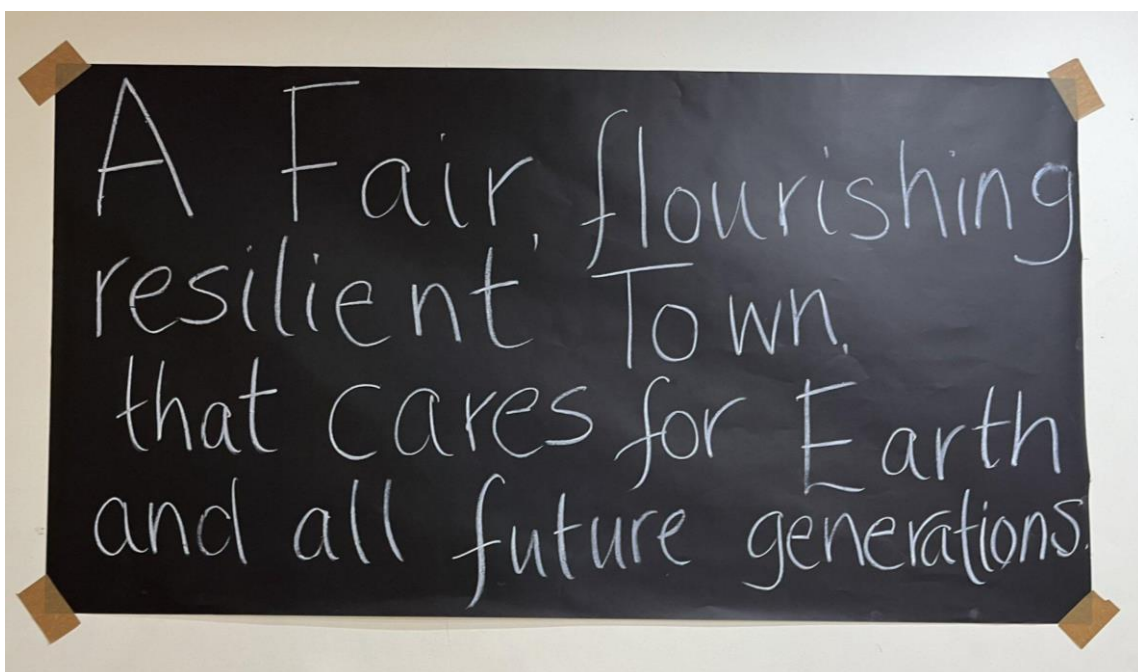 A Fair, flourishing
resilient Town,
that cares for Earth
and all future generations.